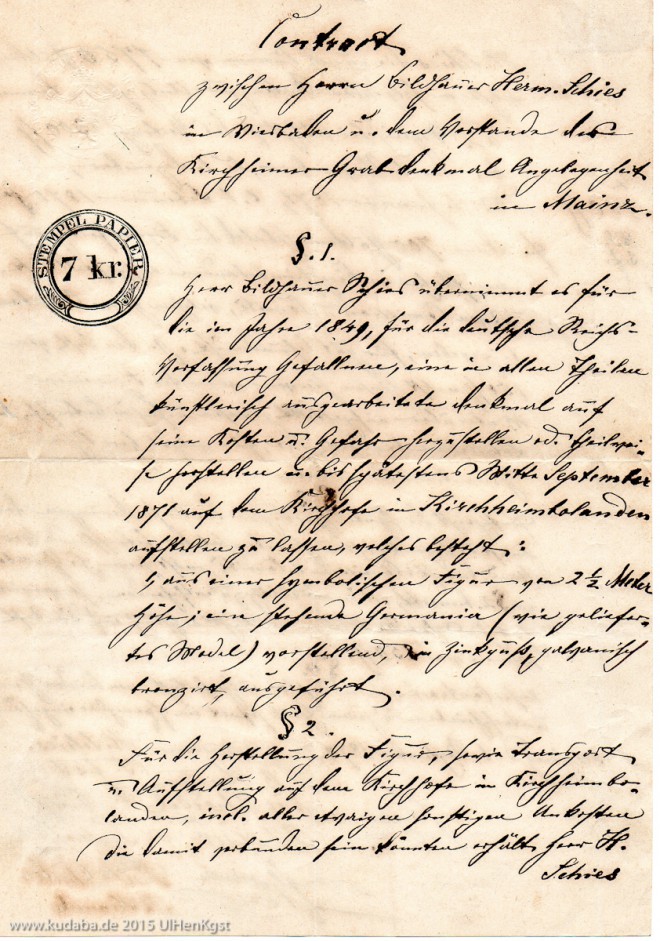 Contract
zwischen Herrn Bildhauer Herm. Schies
in Wiesbaden u. dem Vorstande der
Kirchheimer Grabdenkmal Angelegenheit
in Mainz.
STEMPEL PAPIER
7 kr.
§. 1.
Herr Bildhauer Schies übernimmt es für
die im Jahre 1849, für die deutsche Reichs-
Verfassung Gefallnen, eine in allen Theilen
künstlerisch ausgearbeitete denkmal auf
seine Kosten u. Gefahr herzustellen od. theilwei-
se herstellen u. bis spätestens Mitte September
1871 auf dem Kirchhofe in Kirchheimbolanden
aufstellen zu lassen, welches besteht:
1, aus einer symbolischen Figur von 2 ½ Meter
Höhe; eine stehende Germania (wie geliefer-
tes Model) vorstellend, in Zinkguß, galvanisch
bronzirt, ausgeführt.
§ 2.
Für die Herstellung der Figur, sowie Transport
u. Aufstellung auf dem Kirchhofe in Kirchheimbo-
landen, incl. aller etwaigen sonstigen Unkosten
die damit verbunden sein könnten erhält Herr H.
Schies
www.kudaba.de 2015 UlHenKgst